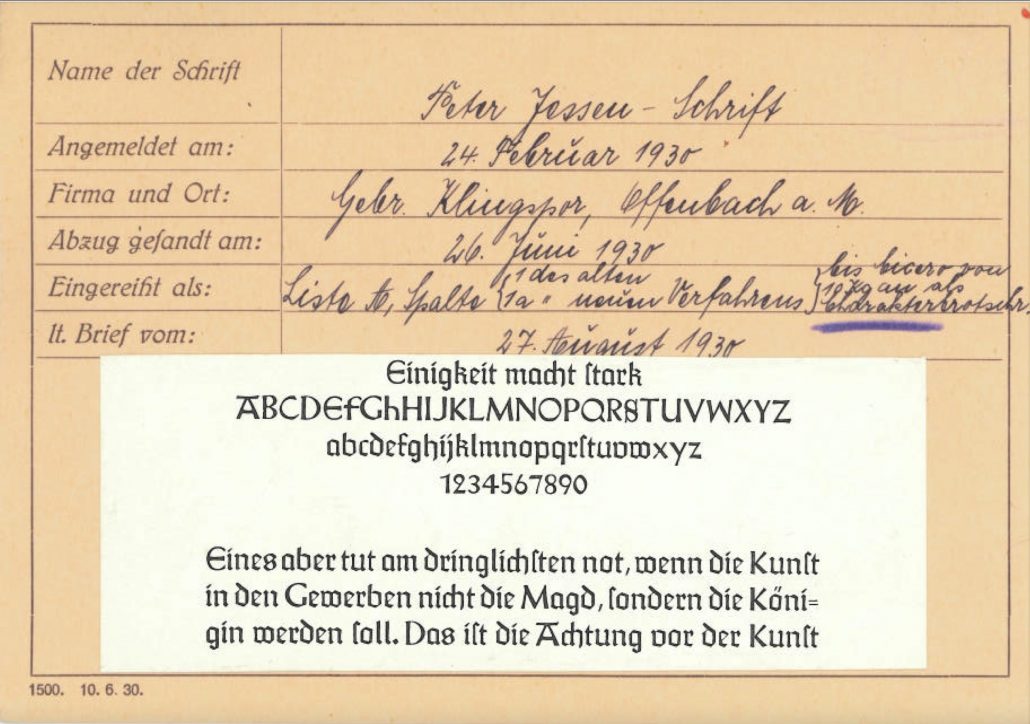 Name der Schrift
Peter Jessen – Schrift
Angemeldet am:
24. Februar 1930
Firma und Ort:
Gebr. Klingspor, Offenbach a. M.
Abzug gesandt am:
26. Juni 1930
Eingereiht als:
Liste A, Spalte { 1 des alten
1a " neuen Verfahrens }
bis bicero von
10 kg an als
lt. Brief vom:
27. August 1930
Einigkeit macht ſtark
ABCDEFGhHIJKLMNOPQRSTUVWXYZ
abcdefghijklmnopqrſtuvwxyz
1234567890
Eines aber tut am dringlichſten not, wenn die Kunſt
in den Gewerben nicht die Magd, ſondern die Köni=
gin werden ſoll. Das iſt die Achtung vor der Kunſt
1500. 10. 6. 30.